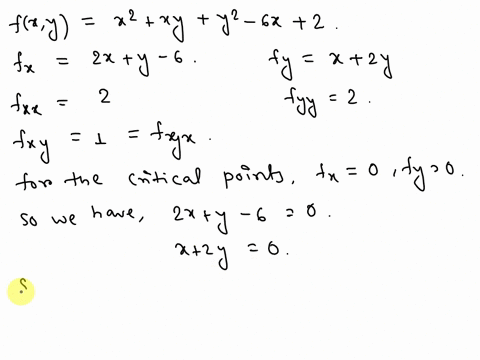 f(x,y) = x² + xy + y² - 6x + 2.
fx = 2x + y - 6. fy = x + 2y
fxx = 2 fyy = 2.
fxy = 1 = fyx.
for the critical points, fx = 0, fy = 0.
so we have, 2x + y - 6 = 0.
x + 2y = 0.
S